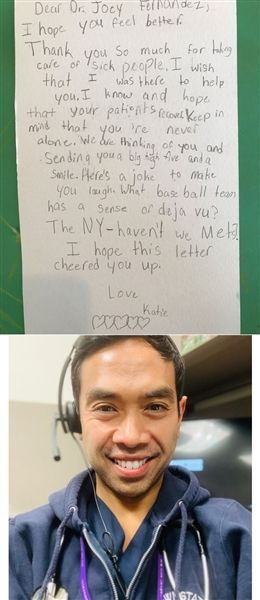 Dear Dr. Joey Fernandez,
I hope you feel better.
Thank you so much for taking
care of sick people. I wish
that I was there to help
you. I know and hope
that your patients recover. Keep in
mind that you're never
alone. We are thinking of you and
sending you a big high five and a
smile. Here's a joke to make
you laugh. What base ball team
has a sense of deja vu?
The NY-haven't we Mets?
I hope this letter
cheered you up.
Love
Katie